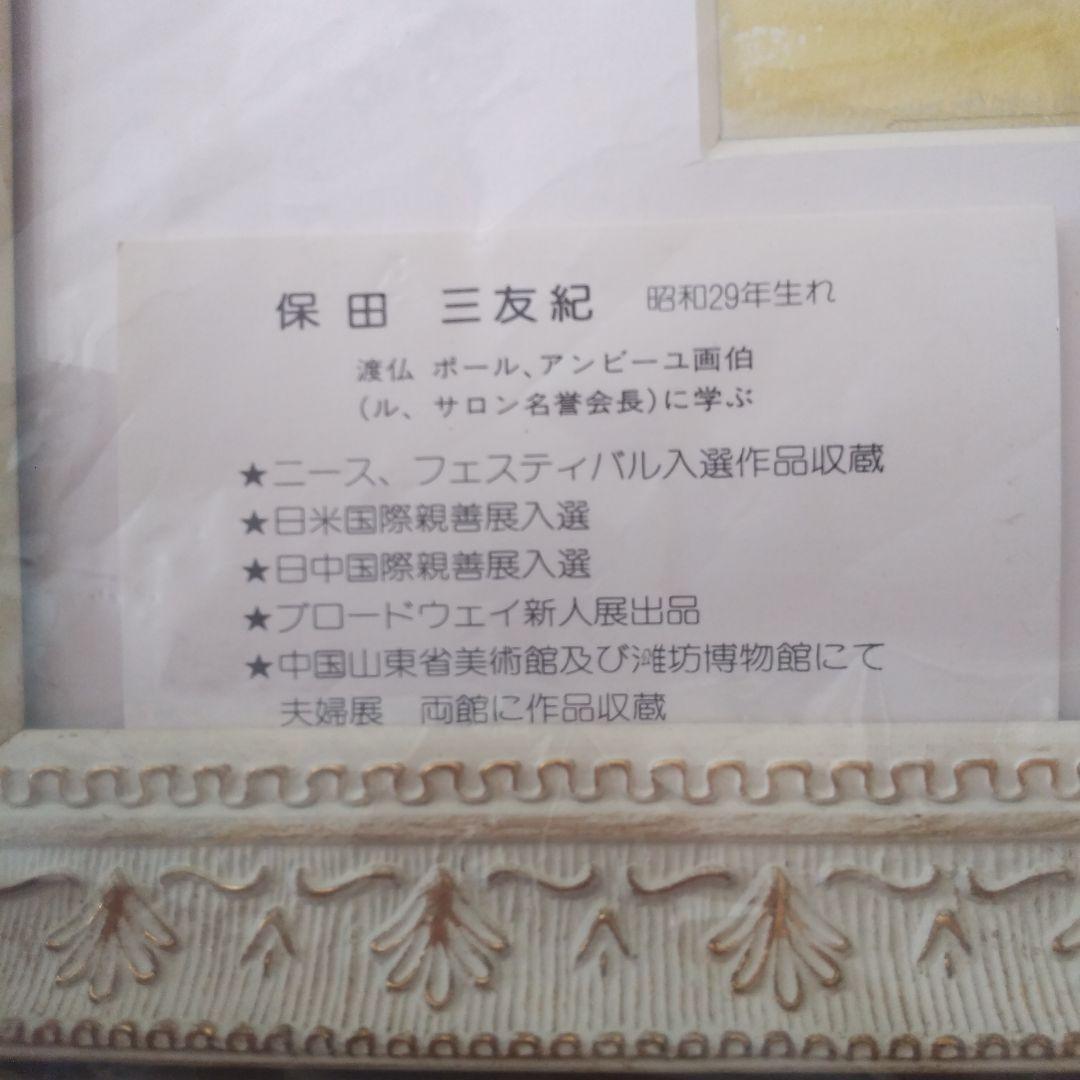 保田 三友紀 昭和29年生れ
渡仏 ポール、アンビーユ画伯
(ル、サロン名誉会長)に学ぶ
★ニース、フェスティバル入選作品収蔵
★日米国際親善展入選
★日中国際親善展入選
★ブロードウェイ新人展出品
★中国山東省美術館及び濰坊博物館にて
夫婦展 両館に作品収蔵